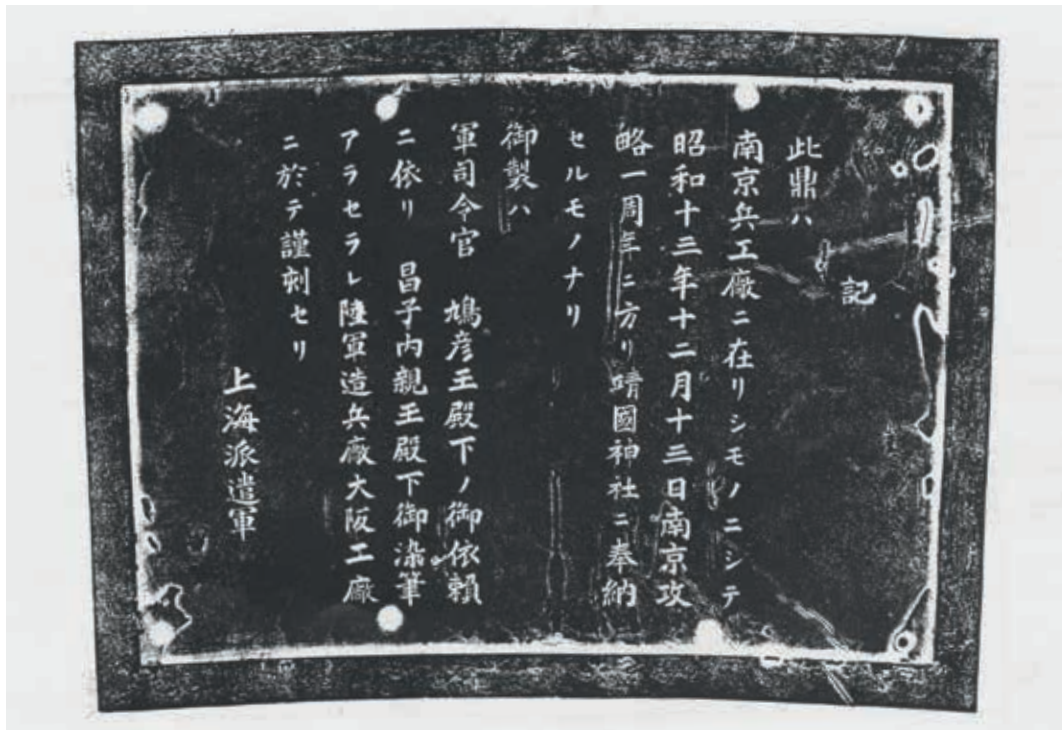 記
此鼎ハ
南京兵工廠ニ在リシモノニシテ
昭和十三年十二月十三日南京攻
略一周年ニ方リ靖國神社ニ奉納
セルモノナリ
御製ハ
軍司令官　鳩彦王殿下ノ御依頼
ニ依リ　昌子内親王殿下御染筆
アラセラレ陸軍造兵廠大阪工廠
ニ於テ謹刻セリ
上海派遣軍